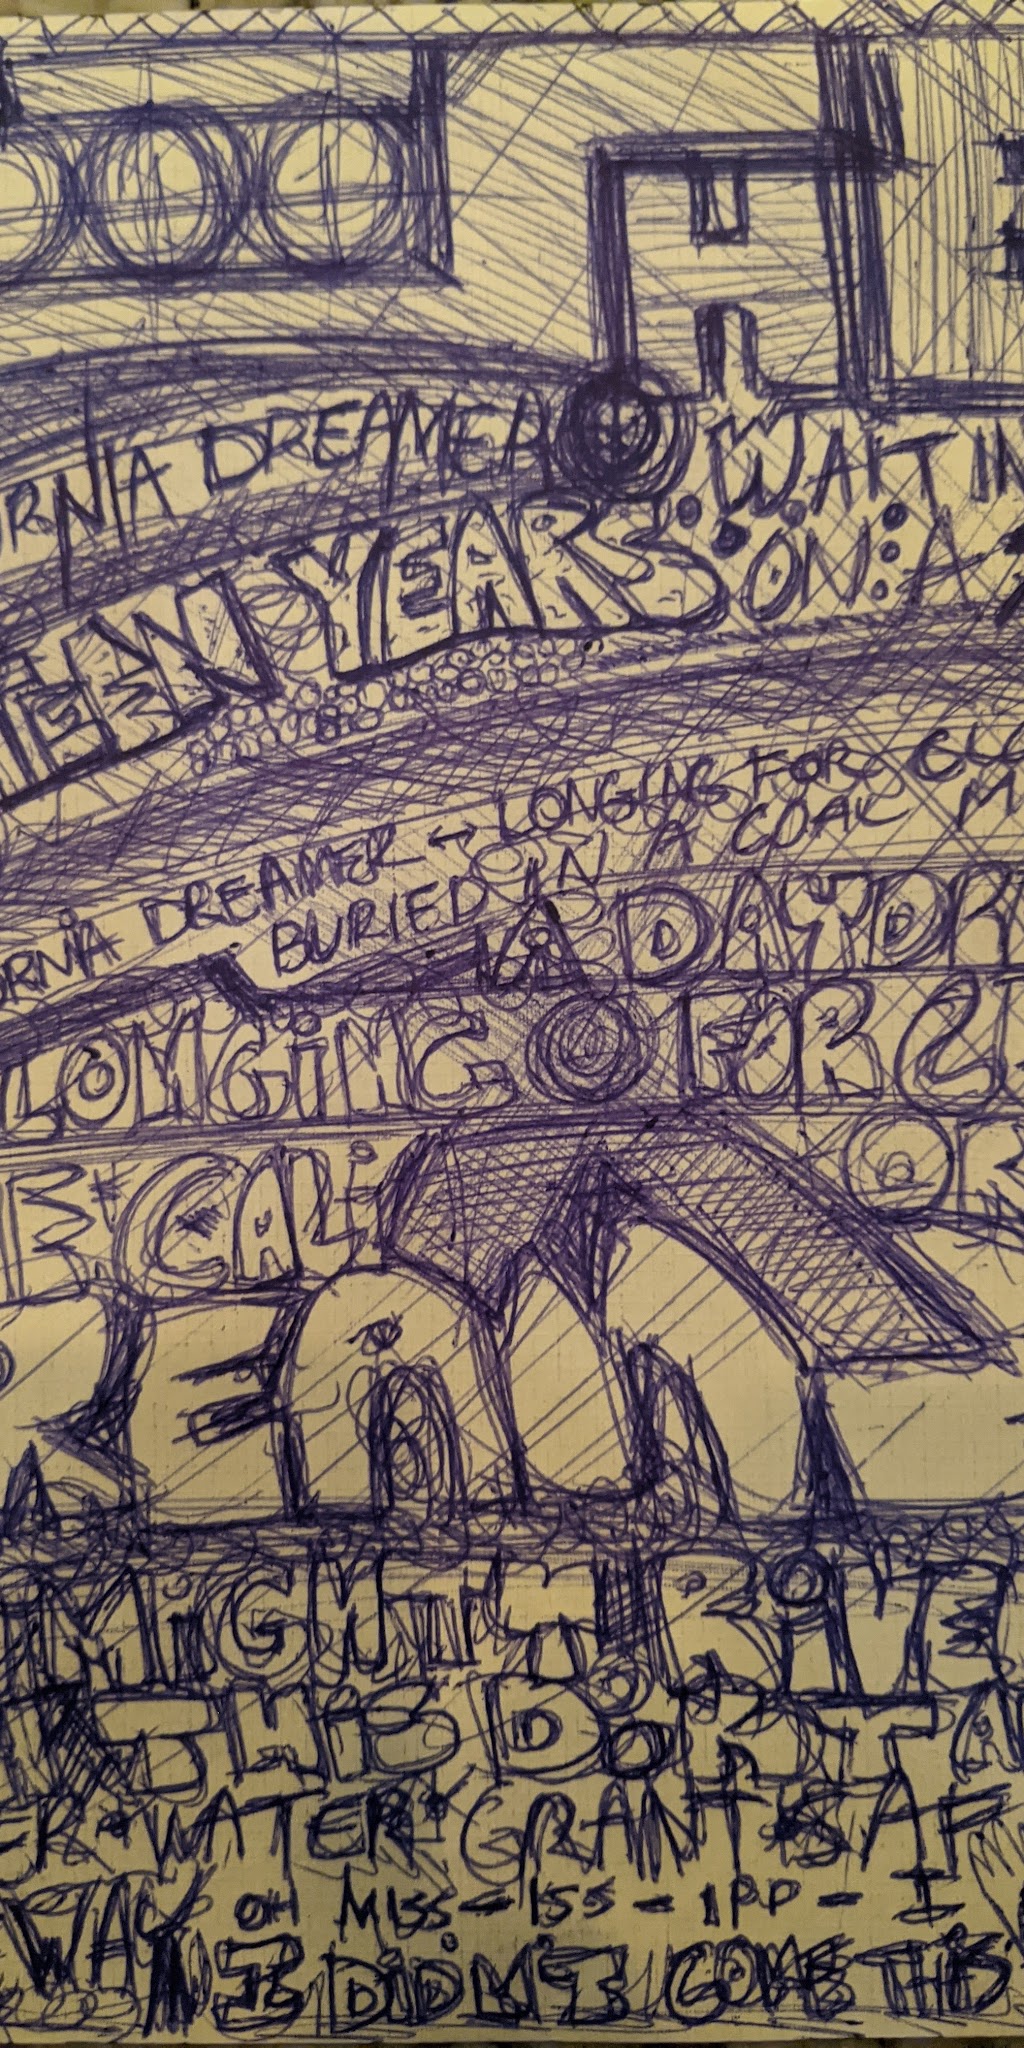 RNIA DREAMER WAITIN
TEEN YEARS ON A
RNIA DREAMER ↔ LONGING FOR CLO
BURIED IN A COAL M
A DAYDR
LONGING FOR CL
CALI OR
REAM
MIGHTY RITE
THIS DON'T A
ER WATER GRANT SAF
WAY OH MISS-ISS-IPP-I
I DIDN'T COME THIS